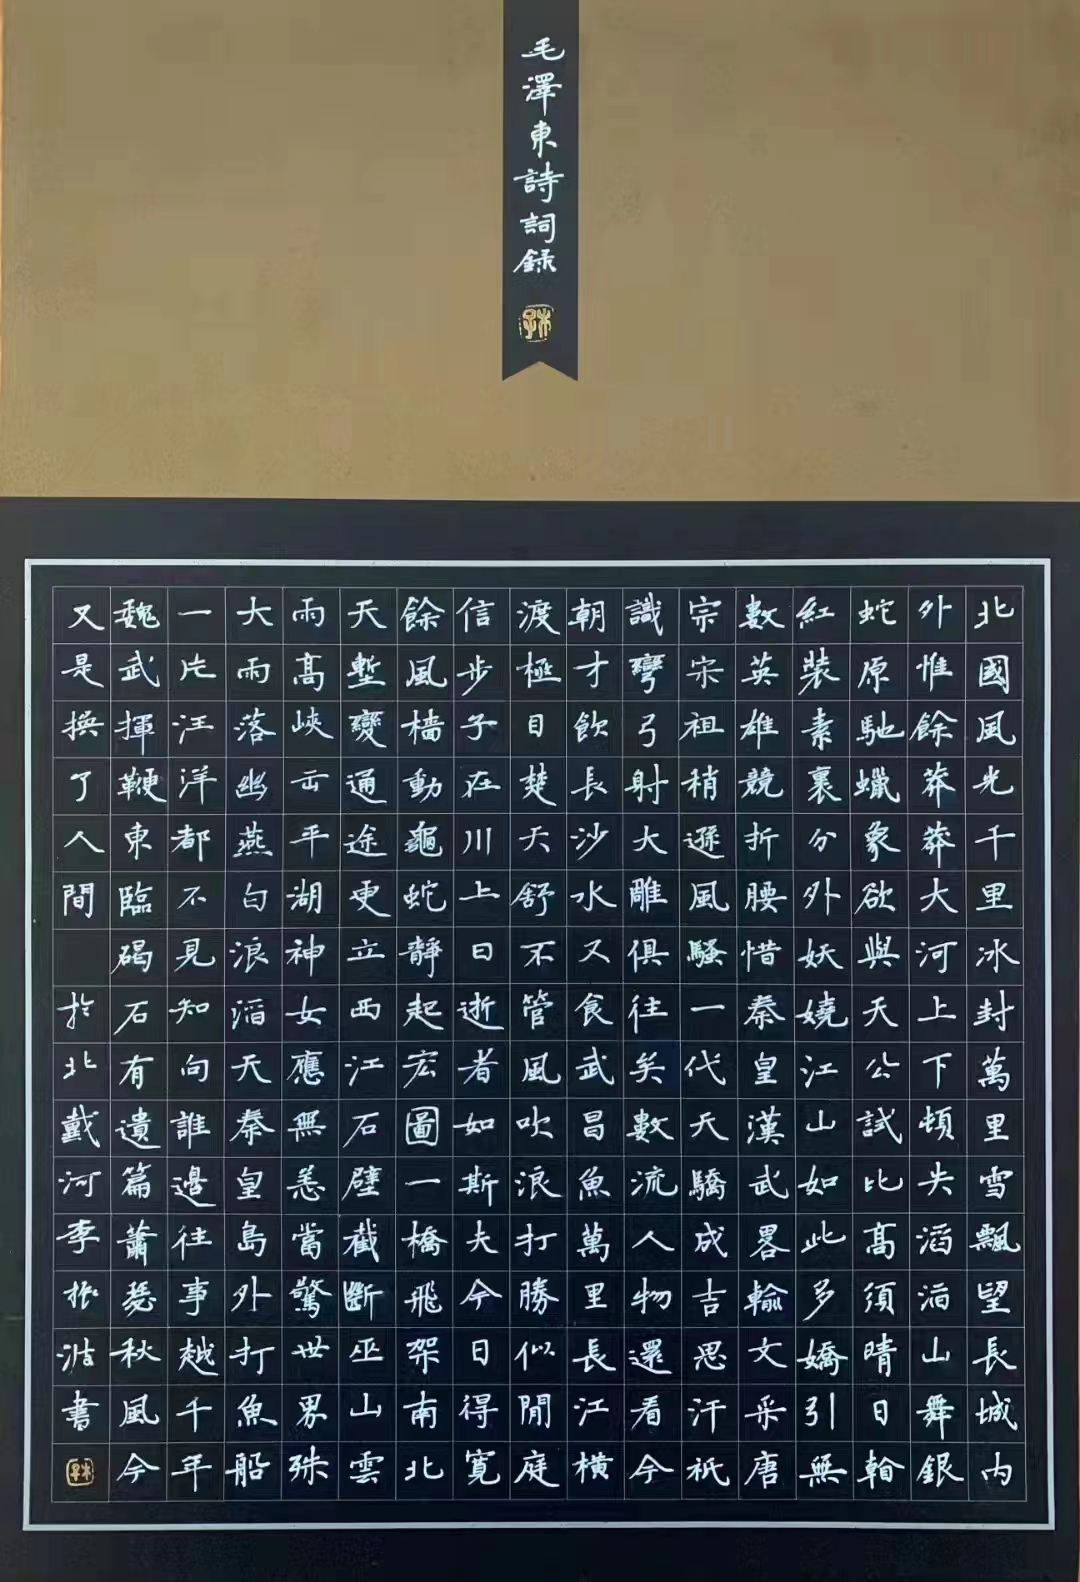 毛澤東詩詞錄
北國風光千里冰封萬里雪飄望長城内
外惟餘莽莽大河上下頓失滔滔山舞銀
蛇原馳蠟象欲與天公試比高須晴日
紅裝素裹分外妖嬈江山如此多嬌引無
數英雄競折腰惜秦皇漢武畧輸文采唐
宗宋祖稍遜風騷一代天驕成吉思汗衹
識彎弓射大雕俱往矣數流人物還看今
朝才飲長沙水又食武昌魚萬里長江橫
渡極目楚天舒不管風吹浪打勝似閒庭
信步子在川上曰逝者如斯夫今日得寬
餘風檣動龜蛇靜起宏圖一橋飛架南北
天塹變通途更立西江石壁截斷巫山雲
雨高峽出平湖神女應無恙當驚世界殊
大雨落幽燕白浪滔天秦皇島外打魚船
一片汪洋都不見知向誰邊往事越千年
魏武揮鞭東臨碣石有遺篇蕭瑟秋風今
又是換了人間 於北戴河李振波書